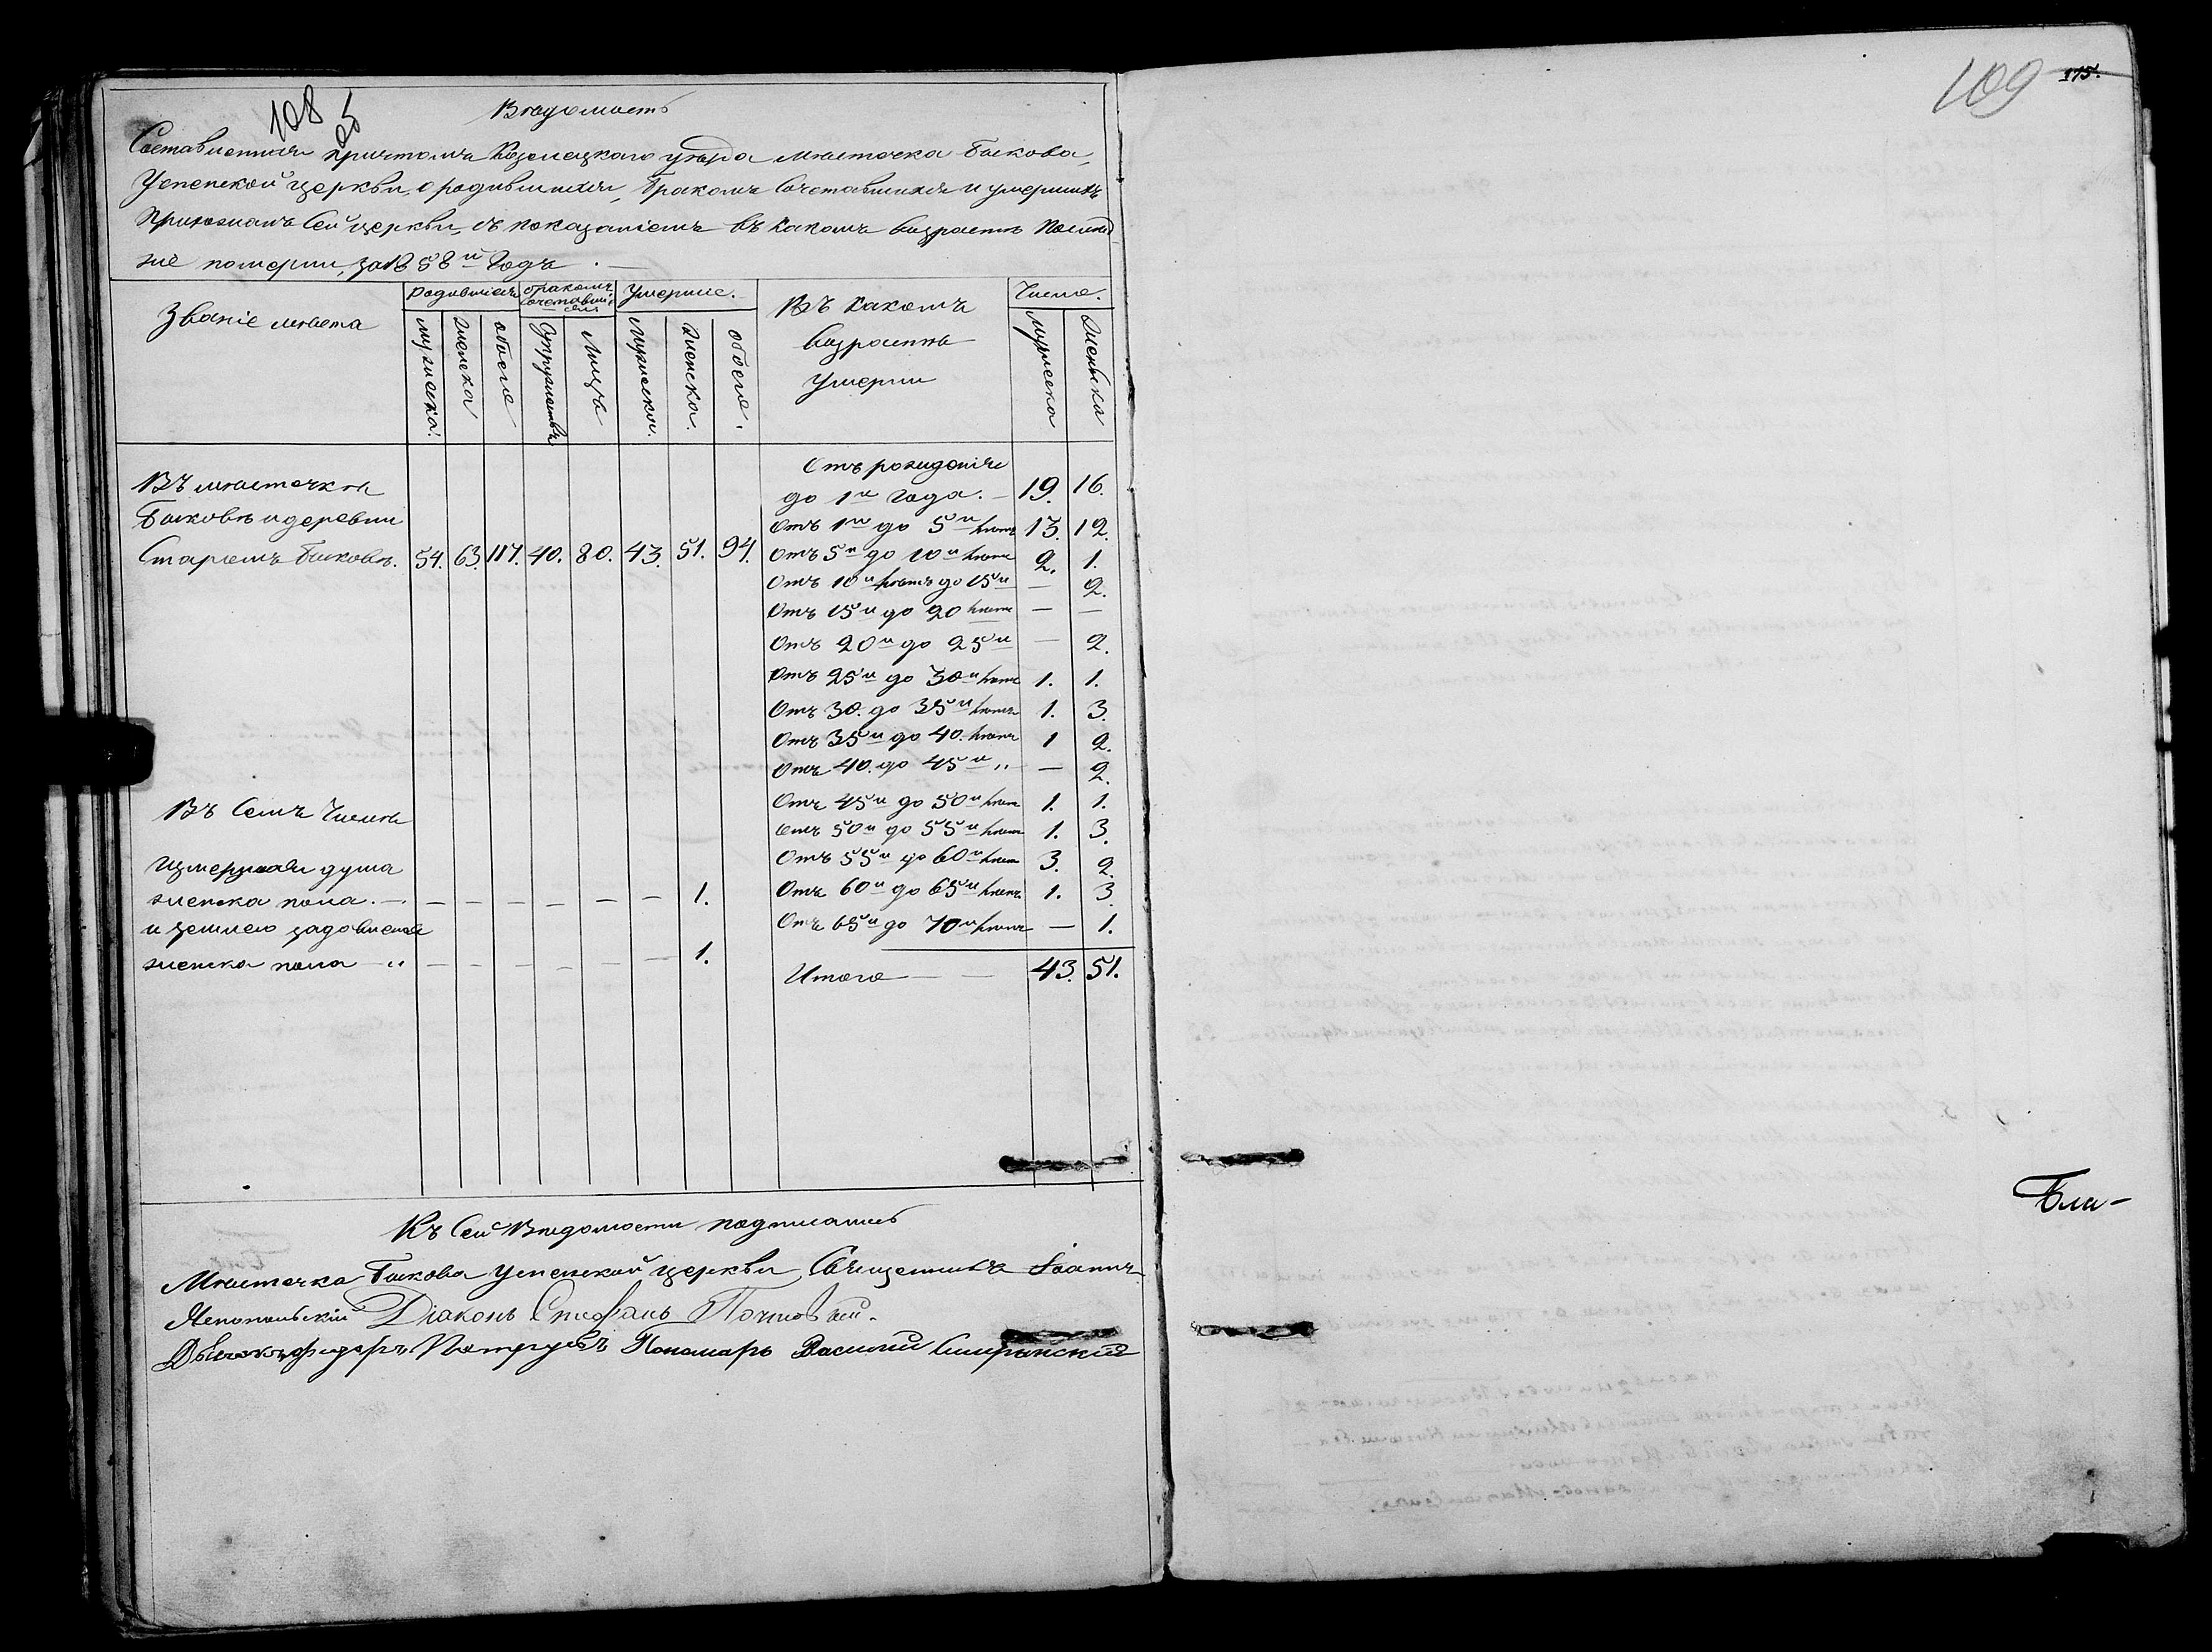 108
Вѣдомость
Составленная причтомъ Козелецкаго уѣзда мѣстечка Быкова,
Успенской церкви, о родившихся, бракомъ сочетавшихся и умершихъ
прихожанъ сей церкви, съ показаніемъ въ какомъ возрастѣ послѣд-
ніе померли, за 1858й годъ.
Званіе мѣста
Родившіеся
бракомъ сочетавшіеся
Умершіе.
Въ какомъ возрастѣ умерли
Число.
мужеска.
женска
обоего
супружествъ
лицъ
мужеска.
женска.
обоего.
мужеска
женска
Въ мѣстечкѣ
Быковѣ и деревни
Старомъ Быковѣ. 54. 63. 117. 40. 80. 43. 51. 94.
Отъ рожденія
до 1го года. — 19. 16.
Отъ 1го до 5и лѣтъ 13. 12.
Отъ 5и до 10и лѣтъ 2. 1.
Отъ 10и лѣтъ до 15и — 2.
Отъ 15и до 20 лѣтъ — —
Отъ 20и до 25и — 2.
Отъ 25и до 30и лѣтъ 1. 1.
Отъ 30. до 35и лѣтъ 1. 3.
Отъ 35и до 40. лѣтъ 1 2.
Отъ 40. до 45и „ — 2.
Отъ 45и до 50и лѣтъ 1. 1.
Отъ 50и до 55и лѣтъ 1. 3.
Отъ 55и до 60и лѣтъ 3. 2.
Отъ 60и до 65и лѣтъ 1. 3.
Отъ 65и до 70и лѣтъ — 1.
Итого — — 43. 51.
Въ семъ числѣ
душа
женска пола. — — — — — — — 1.
и землею
женска пола — „ — — — — — — 1.
Къ сей вѣдомости подписались
Мѣстечка Быкова Успенской церкви, Священникъ Іоаннъ
Діаконъ Стефанъ
Дьячокъ Федоръ Пономарь Василий
109
175.
Бли-